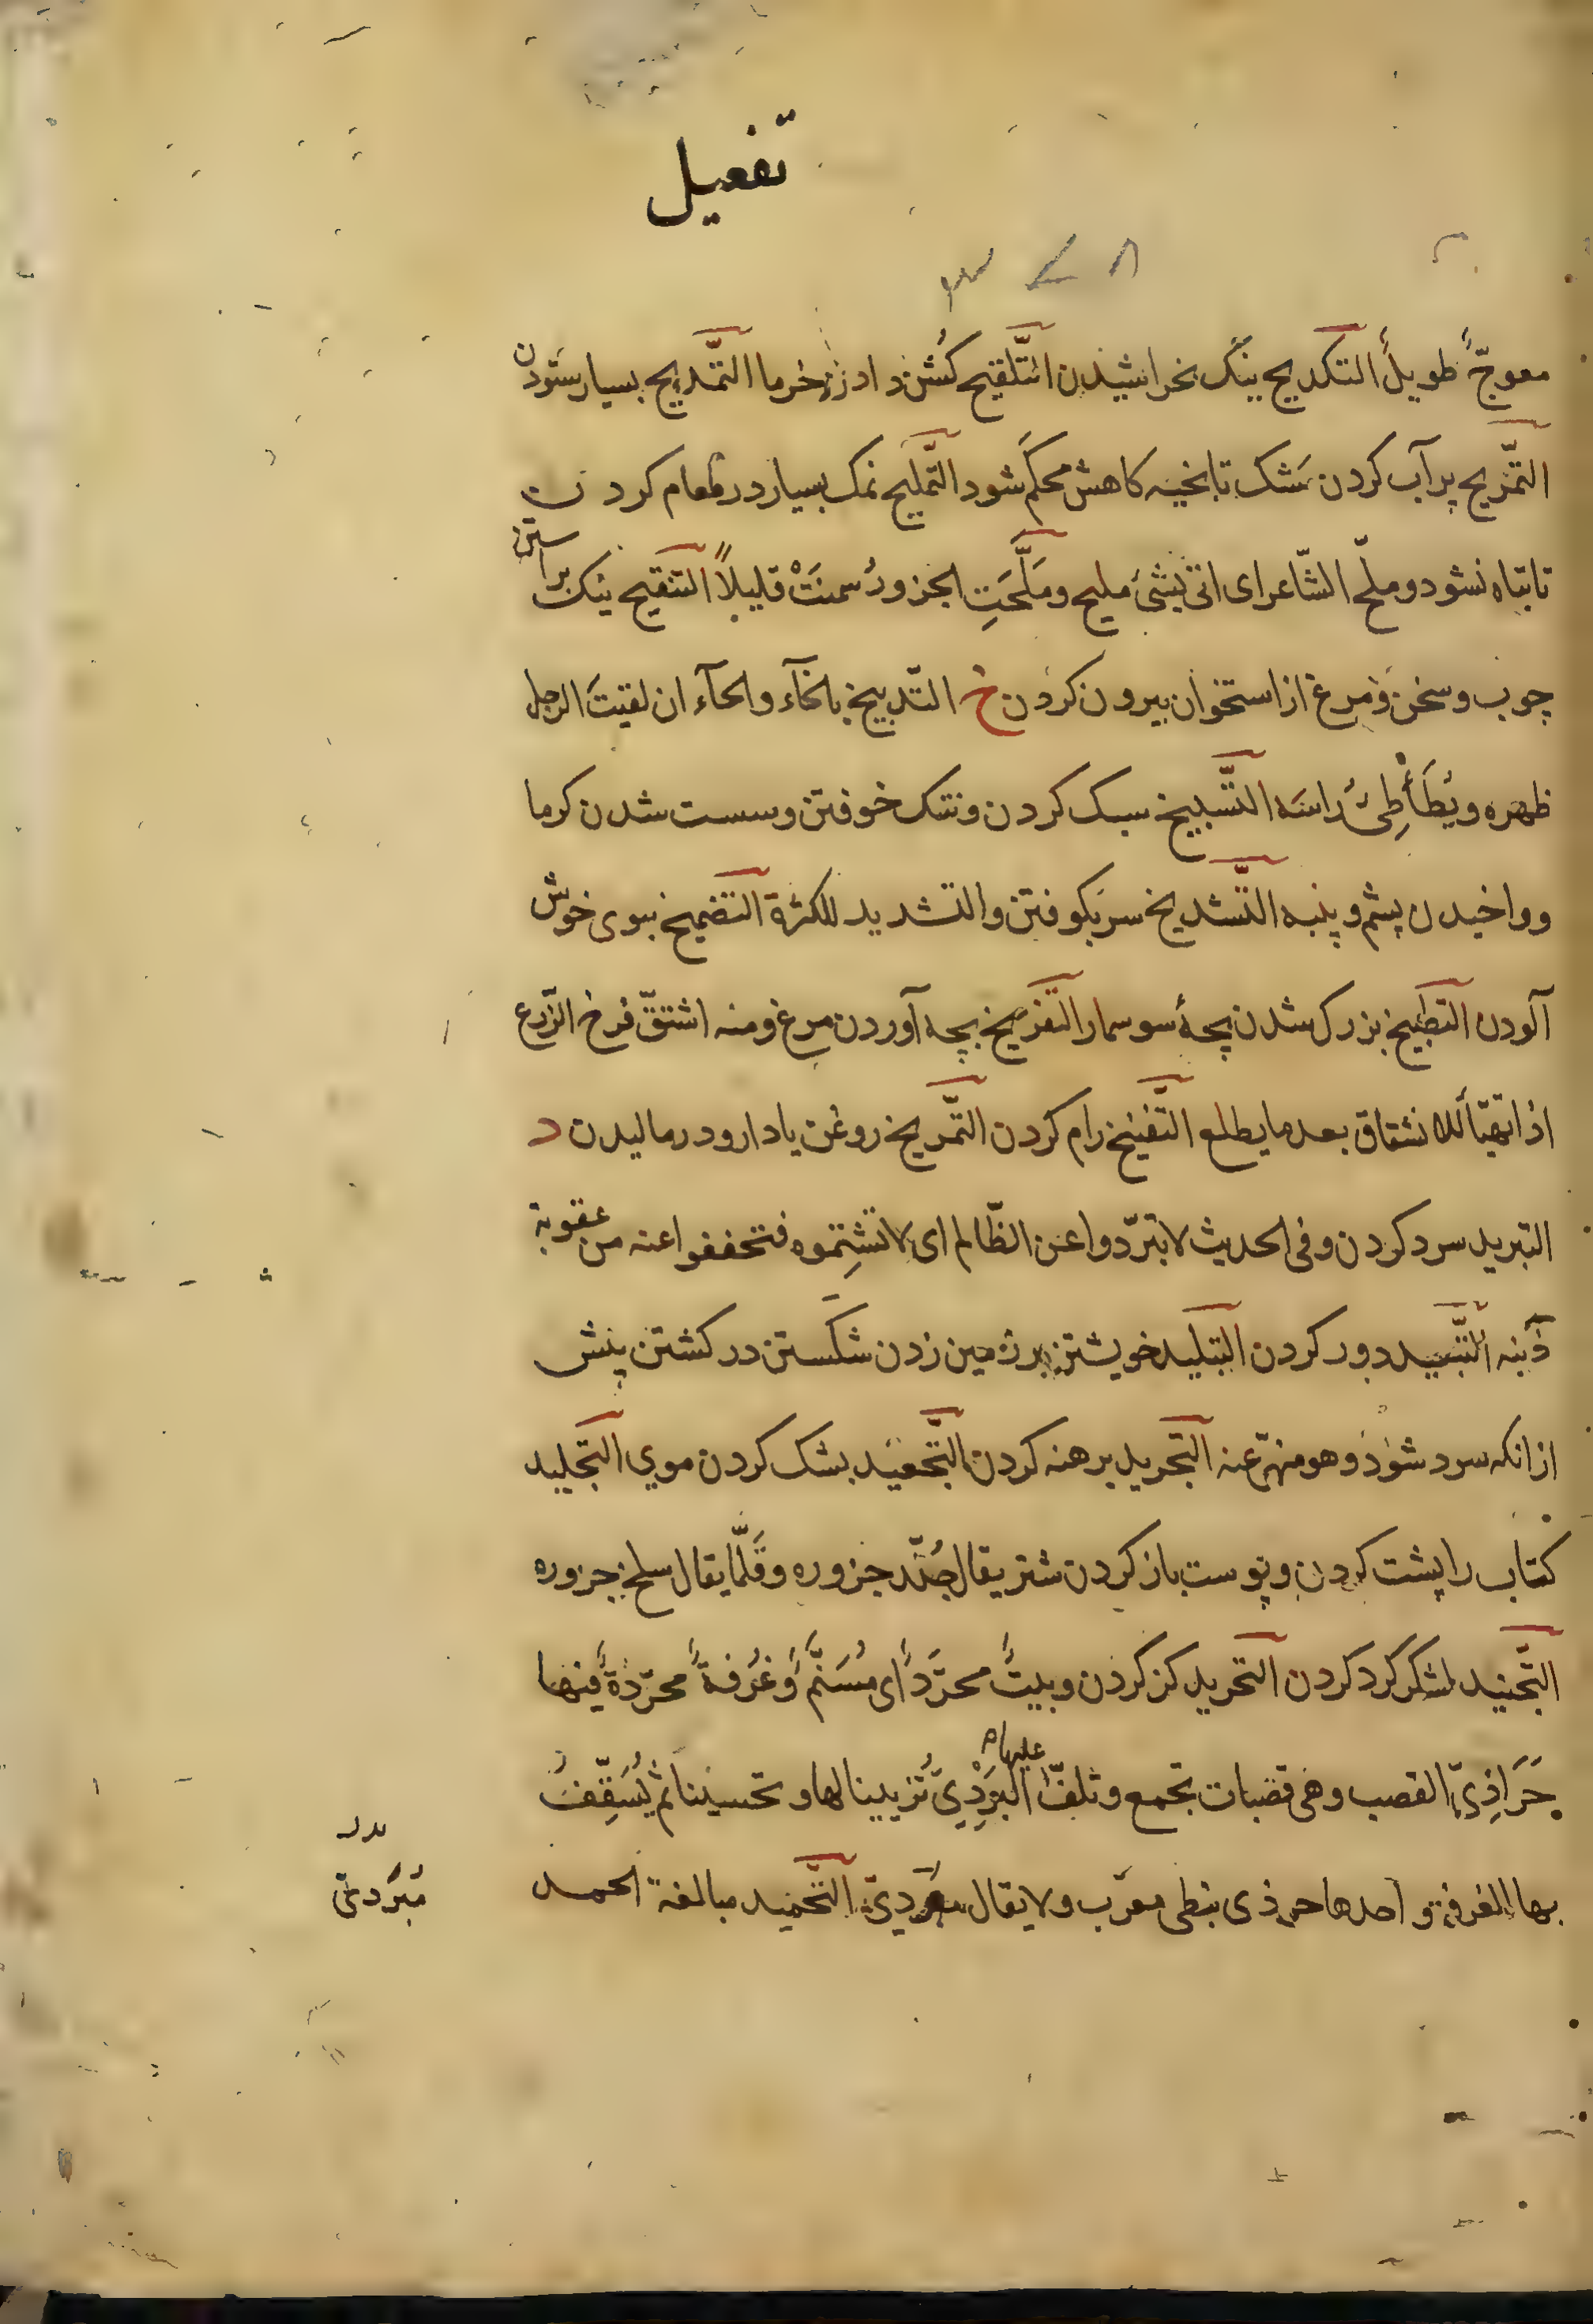 تفعیل
معوجّ طویل التکدیح نیک بخراشیدن التّلقیح کشن دادن خرما التّمدیح بسیار ستودن
التّمزیح پر آب کردن مشک تا بخیه کاهش محکم شود التّملیح نمک بسیار در طعام کردن
تا تباه نشود و ملّح الشّاعر ای اتی بشئ ملیح و مَلَّحَتِ الجزورُ سمنَتْ قلیلاً التنقیح نیک پیراستن
چوب و سخن و مغز از استخوان بیرون کردن خ التّدبیخ بالخآء والحآء ان لقیتَ الرجل
ظهره ویُطَأْطِئُ راسَه التَّسبیخ سبک کردن و تنک خوفتن و سست شدن کرما
و واخیدن پشم و پنبه التَّشدیخ سر بکوفتن والتشدید للکثرة التضمیخ ببوی خوش
آلودن التطبیخ بزرک شدن بچهٔ سوسمار التفریخ بچه آوردن مرغ ومنه اشتقّ فرخ الزّرع
اذا تهیّأ للانشقاق بعد ما یطلع التَّفنیخ رام کردن التَّمریخ روغن یا دارو در مالیدن د
التبرید سرد کردن و فی الحدیث لا تبرّدوا عن الظّالم ای لا تشتِموه فتخففوا عنه من عقوبة
ذنبه التَّبعید دور کردن التبلید خویشتن بر زمین زدن شکستن در کشتن پیش
از انکه سرد شوذ و هو منهیّ عنه التَّجرید برهنه کردن التَّجعید بشک کردن موی التَّجلید
کتاب را پشت کردن و پوست باز کردن شتر یقال جُلّد جزوره و قَلَّما یقال سلخ جزوره
التَّجنید لشکر کرد کردن التحرید کز کردن و بیتٌ محرَّدٌ ای مُسَنَّمٌ و غُرفةٌ محرّدةٌ فیها
حَرَاذِیّ القصب و هی قصبات تجمع و تلفّ علیها البَرْدِیّ تزیینا لها و تحسینا ثم یُسَقَّفُ
بها الغرفة و احدها حرذی نبطی معرّب و لا یقال هردیّ التَّحمید مبالغة الحمد